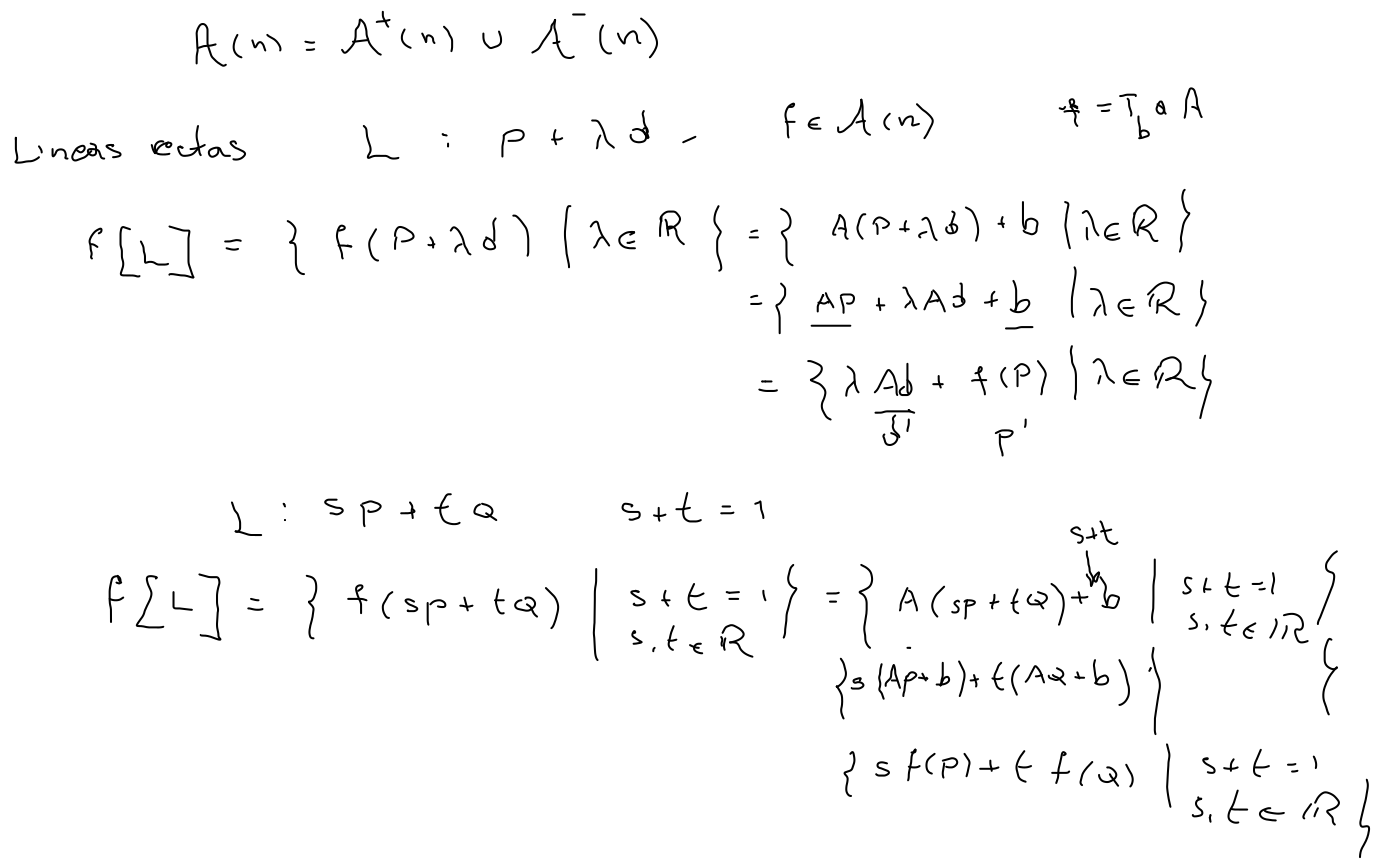 A(n) = A⁺(n) ∪ A⁻(n)
Lineas rectas L : P + λd - f ∈ A(n) f = T_b ∘ A
f[L] = { f(P+λd) | λ ∈ ℝ } = { A(P+λd) + b | λ ∈ ℝ }
= { AP + λAd + b | λ ∈ ℝ }
= { λ Ad + f(P) | λ ∈ ℝ }
d' P'
L : sP + tQ s+t = 1
s+t
f[L] = { f(sP+tQ) | s+t = 1 s,t ∈ ℝ } = { A(sP+tQ) + b | s+t = 1 s,t ∈ ℝ }
{ s(AP+b) + t(AQ+b) | }
{ s f(P) + t f(Q) | s+t = 1 s,t ∈ ℝ }